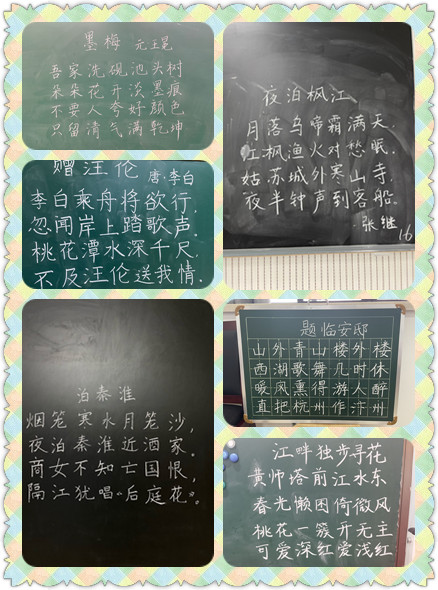 墨梅 元 王冕
吾家洗砚池头树
朵朵花开淡墨痕
不要人夸好颜色
只留清气满乾坤
夜泊枫江
月落乌啼霜满天,
江枫渔火对愁眠.
姑苏城外寒山寺,
夜半钟声到客船.
张继
16
赠汪伦 唐·李白
李白乘舟将欲行,
忽闻岸上踏歌声.
桃花潭水深千尺,
不及汪伦送我情.
题临安邸
山外青山楼外楼
西湖歌舞几时休
暖风熏得游人醉
直把杭州作汴州
泊秦淮
烟笼寒水月笼沙,
夜泊秦淮近酒家.
商女不知亡国恨,
隔江犹唱“后庭花”.
江畔独步寻花
黄师塔前江水东
春光懒困倚微风
桃花一簇开无主
可爱深红爱浅红